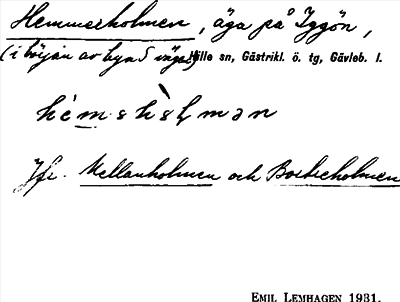 Hemmerholmen, äga på Iggön,
(i början av byns väg) Hille sn, Gästrikl. ö. tg, Gävleb. l.
Jfr. Mellanholmen och Bortreholmen
EMIL LEMHAGEN 1931.